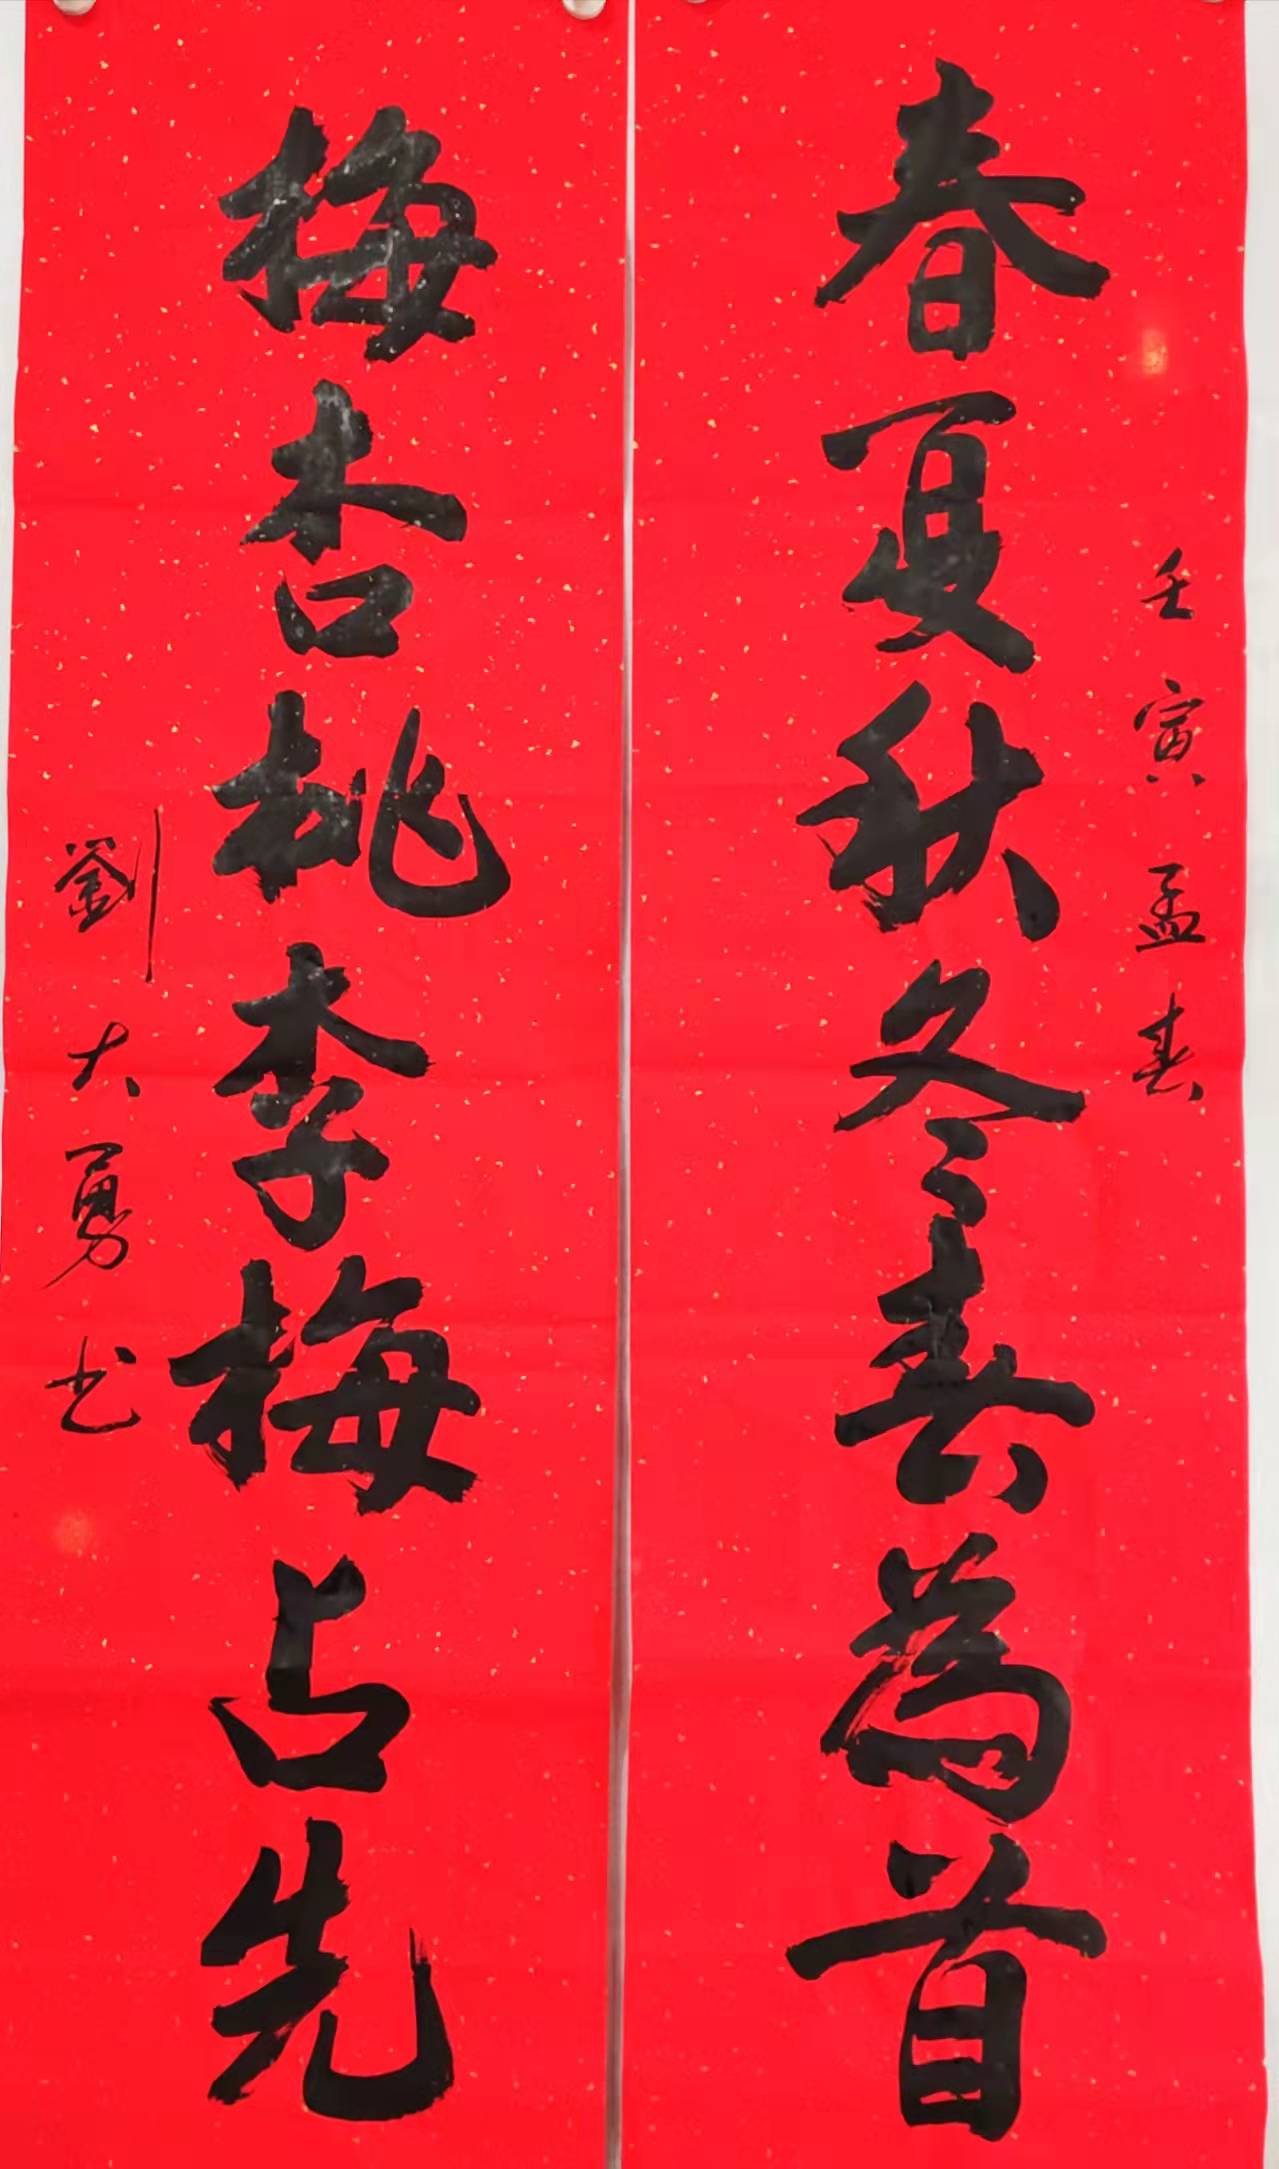 壬寅孟春
春夏秋冬春為首
梅杏桃李梅占先
劉大勇书